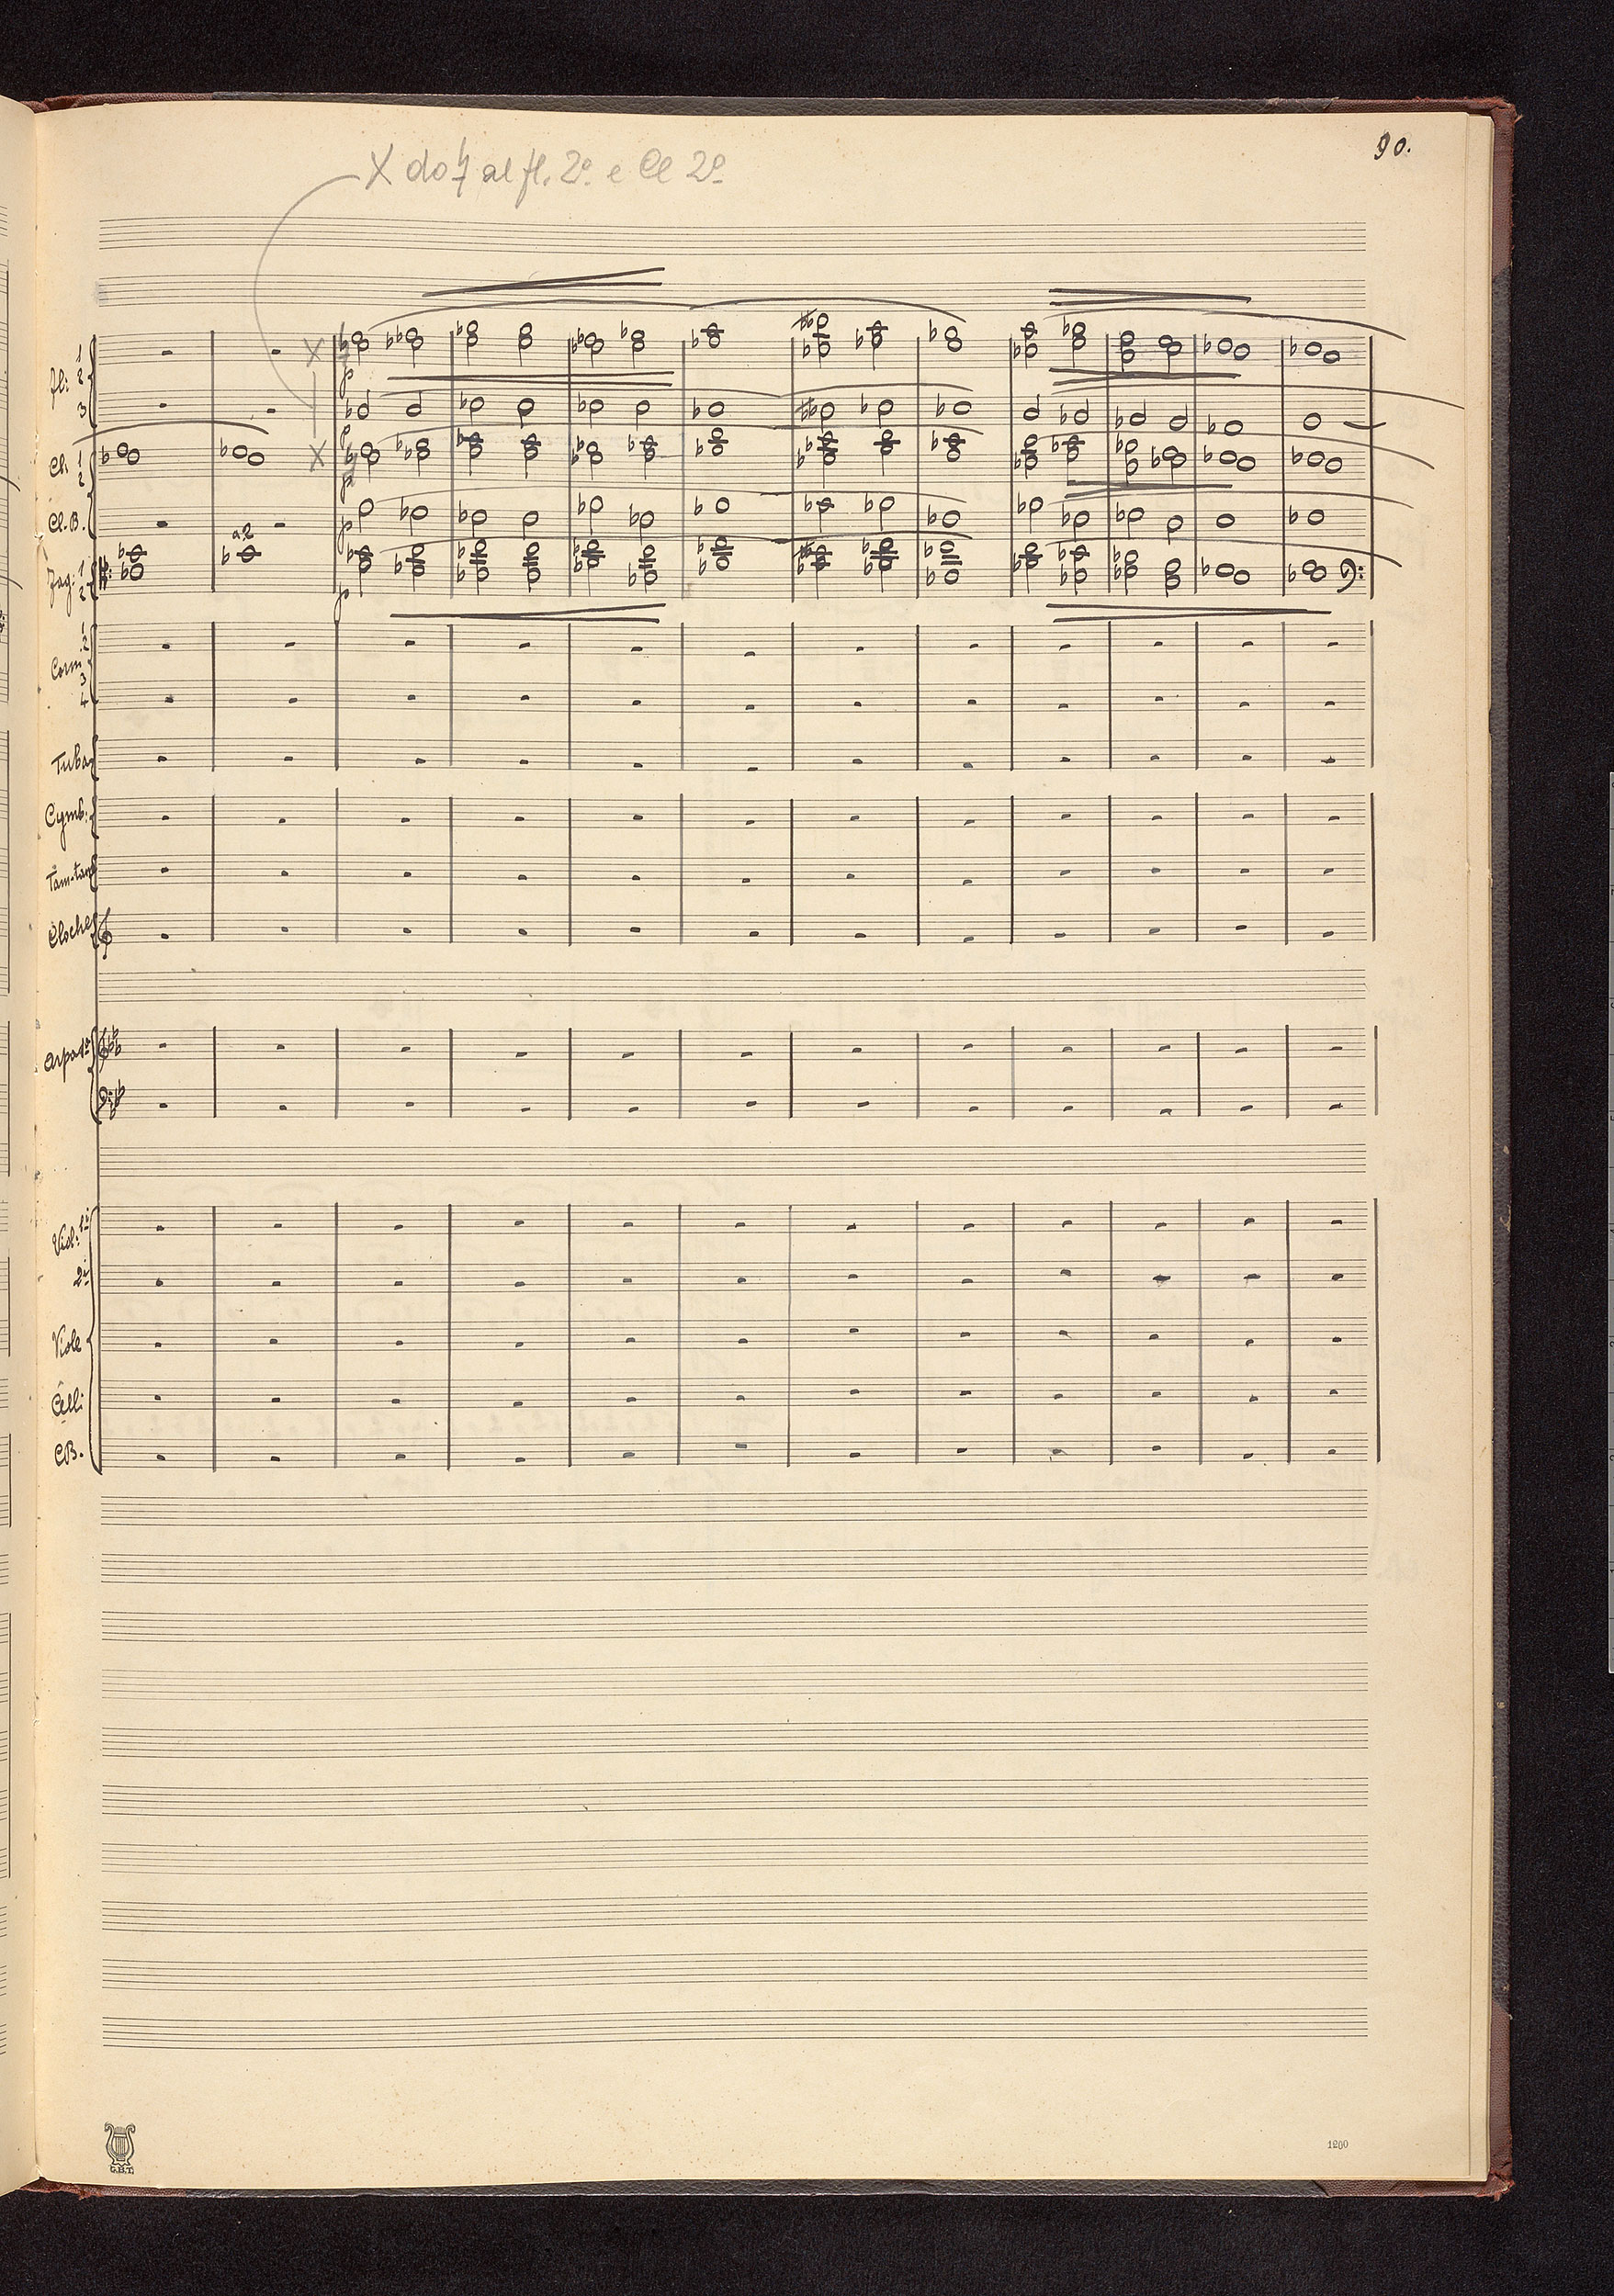 90.
X do ♮ al fl. 2º e Cl 2º
fl: 1
2
3
Cl: 1
2
Cl. B.
a2
Fag: 1
2
p
p
p
p
p
Corni 1
2
3
4
Tuba
Cymb:
Tam-tam
Cloches
Arpa 1ª
Viol: 1i
2i
Viole
Celli
CB.
G.B.T.
1200